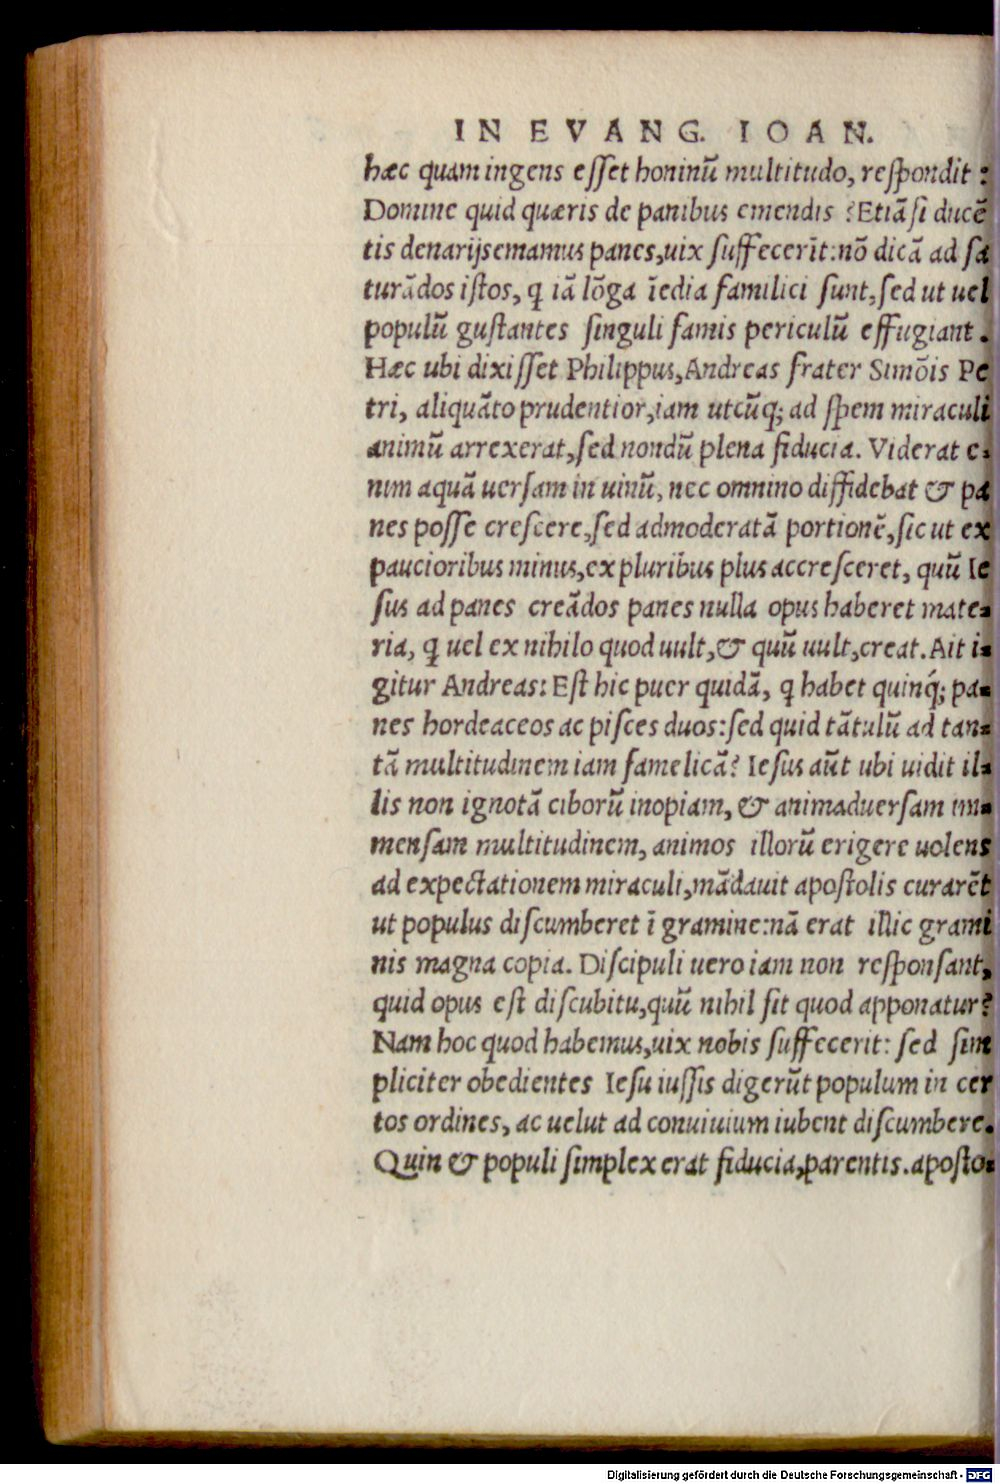 IN EVANG. IOAN.
hæc quam ingens eſſet honinū multitudo, reſpondit :
Domine quid quæris de panibus emendis ? Etiā ſi ducē
tis denarijs emamus panes, uix ſuffecerīt: nō dicā ad ſa
turādos iſtos, q̄ iā lōga īedia familici ſunt, ſed ut uel
populū guſtantes ſinguli famis periculū effugiant .
Hæc ubi dixiſſet Philippus, Andreas frater Simōis Pe
tri, aliquāto prudentior, iam utcūq; ad ſpem miraculi
animū arrexerat, ſed nondū plena fiducia. Viderat e-
nim aquā uerſam in uinū, nec omnino diffidebat & pa
nes poſſe creſcere, ſed ad moderatā portionē, ſic ut ex
paucioribus minus, ex pluribus plus accreſceret, quū Ie
ſus ad panes creādos panes nulla opus haberet mate-
ria, q̄ uel ex nihilo quod uult, & quū uult, creat. Ait i-
gitur Andreas: Eſt hic puer quidā, q̄ habet quinq́; pa-
nes hordeaceos ac piſces duos: ſed quid tātulū ad tan-
tā multitudinem iam famelicā? Ieſus aūt ubi uidit il-
lis non ignotā ciborū inopiam, & animaduerſam im-
menſam multitudinem, animos illorū erigere uolens
ad expectationem miraculi, mādauit apoſtolis curarēt
ut populus diſcumberet ī gramine: nā erat illic grami
nis magna copia. Diſcipuli uero iam non reſponſant,
quid opus eſt diſcubitu, quū nihil ſit quod apponatur?
Nam hoc quod habemus, uix nobis ſuffecerit: ſed ſim
pliciter obedientes Ieſu iuſſis digerūt populum in cer
tos ordines, ac uelut ad conuiuium iubent diſcumbere.
Quin & populi ſimplex erat fiducia, parentis. apoſto-
Digitalisierung gefördert durch die Deutsche Forschungsgemeinschaft - DFG